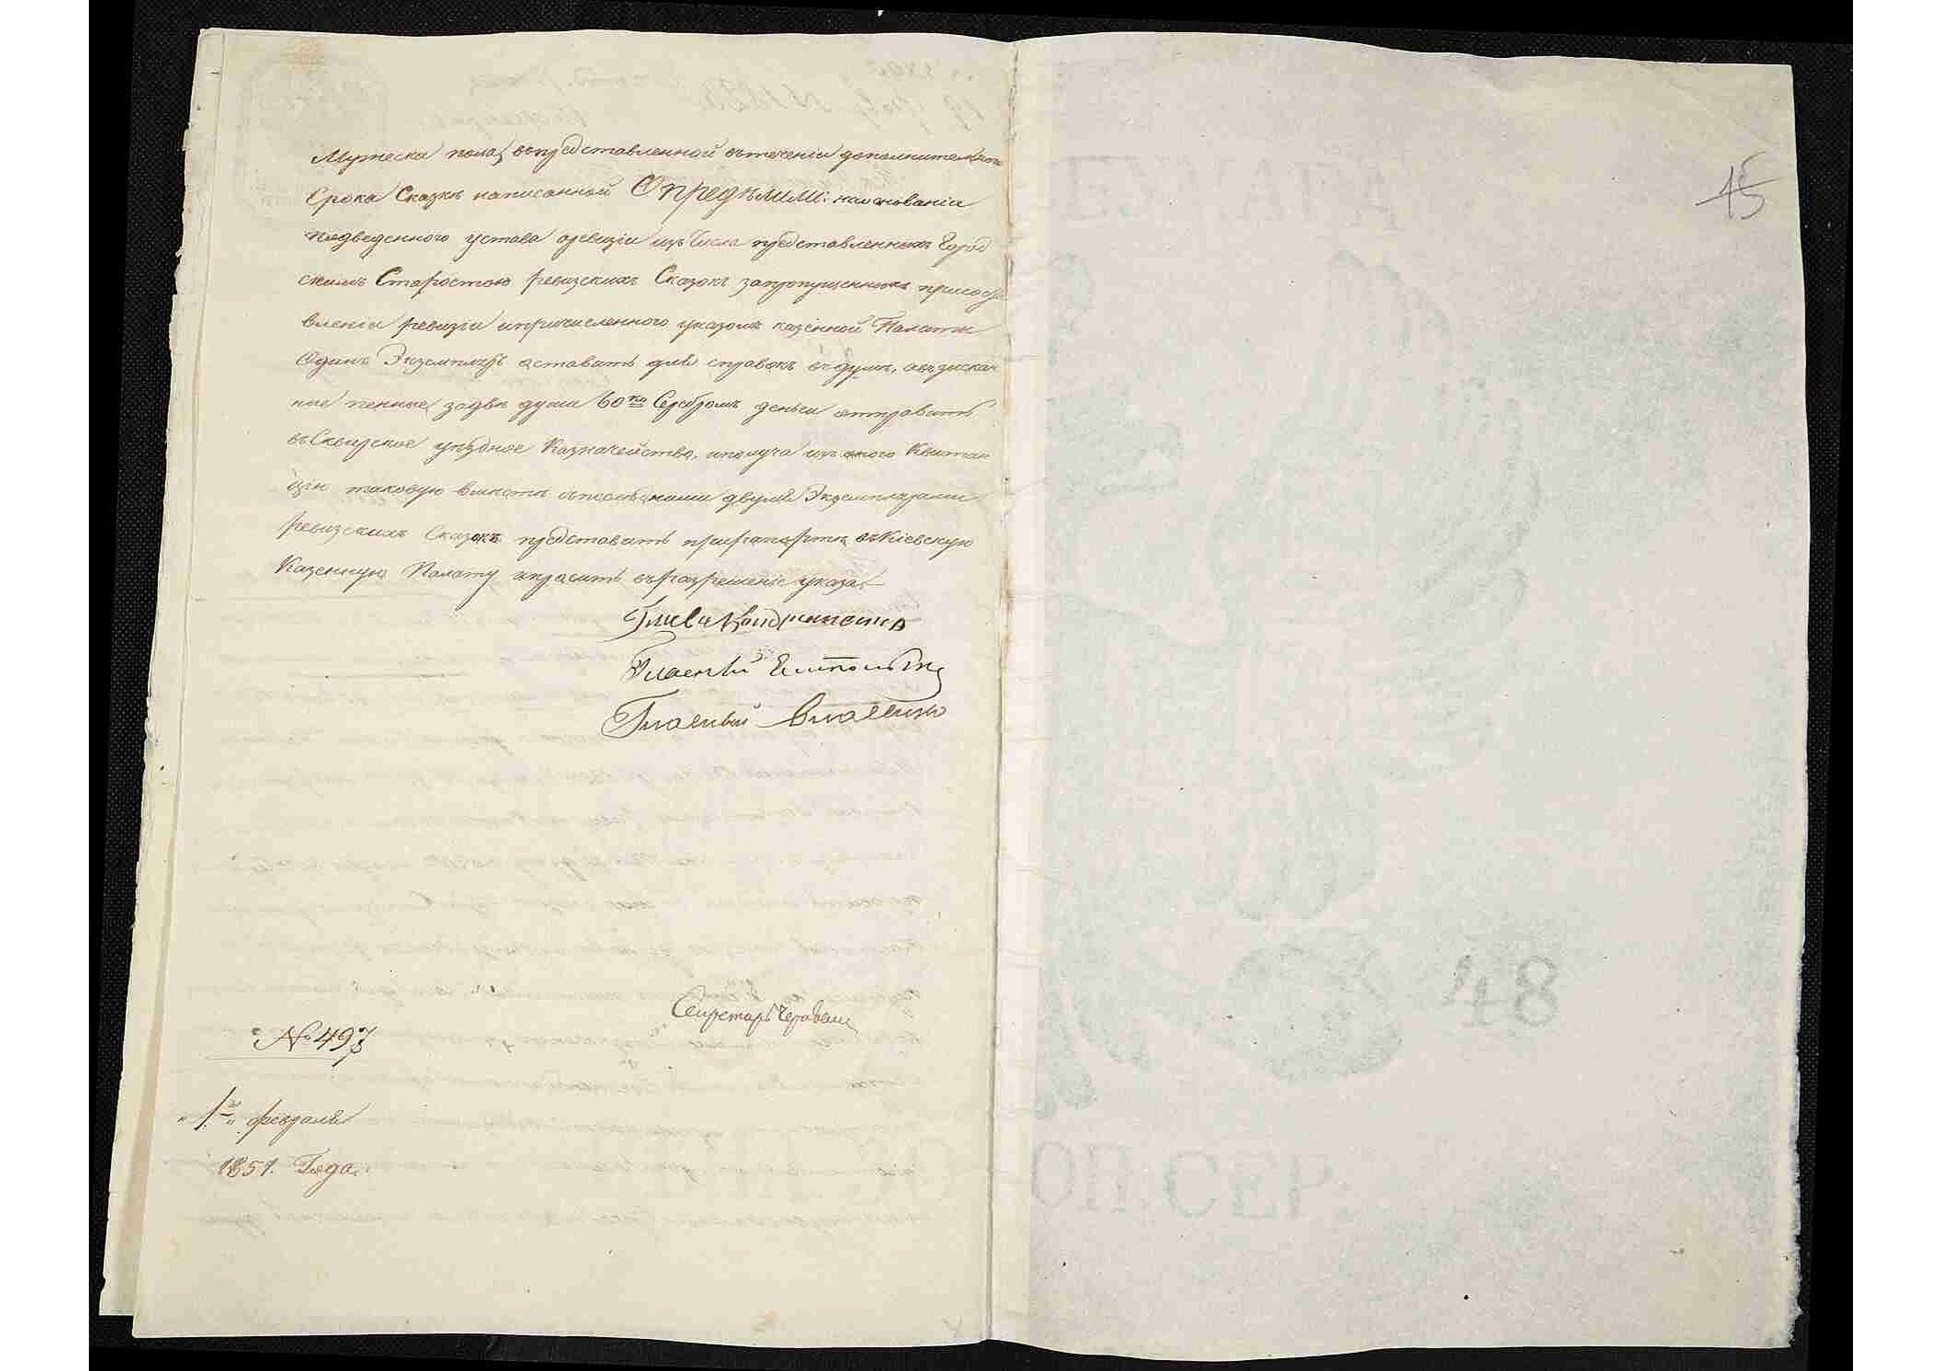 Мужеска пола, въ представленной въ теченіи дополнительного
Срока Сказкѣ написанной Опредѣлили: на основаніи
подведенного устава оревизіи изъ Числа представленныхъ Город
скимъ Старостою ревизскихъ Сказокъ запропущенныхъ присоста
вленіи ревизіи ипричисленного указомъ казенной Палаты
Одинъ Экземпляръ оставить для справокъ въ думѣ, авзыскан
ные пенные задвѣ души 60 ко Серебромъ деньги отправить
въ Сквирское уѣздное Казначейство, иполуча изъ оного Квитан
цію таковую вместѣ съ двумя Экземплярами
ревизскихъ Сказокъ представить прирапортѣ въ Кіевскую
Казенную Палату ипросить въ разрешеніе указа.
Глава
Гласный
Гласный
Секретарь
№ 497
"1го" февраля
1851. Года.
45
48
ОП. СЕР.